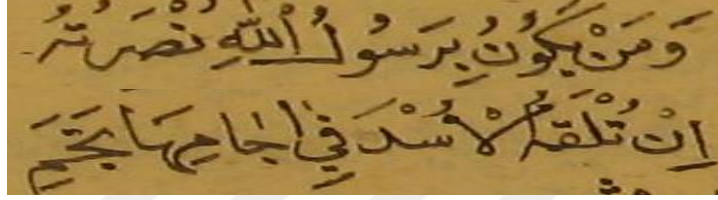 وَمَنْ يَكُوْنُ بِرَسُولُ اللهِ نُصْرَتُهُ
اِنْ تُلْقَهُ لْاُسْدَ فِي اٰجَامِهَا تَجِمَ